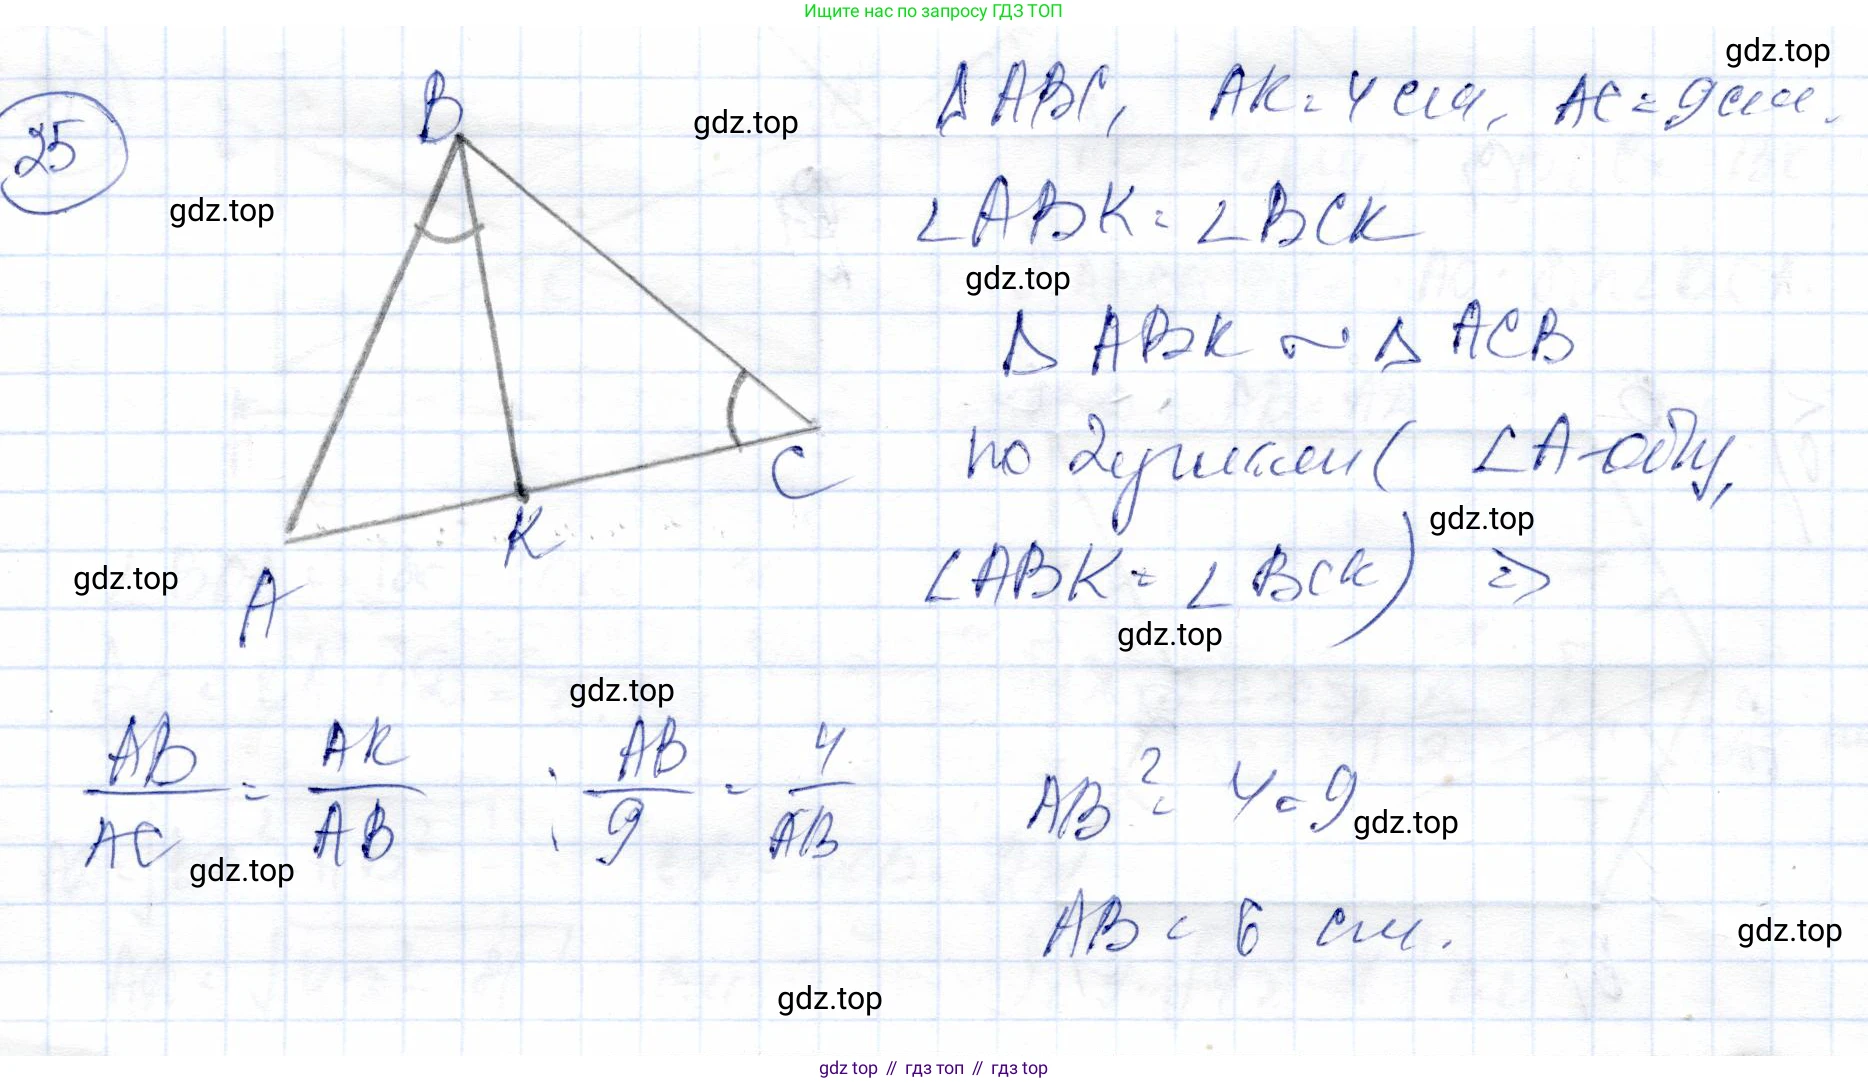 Ищите нас по запросу ГДЗ ТОП
gdz.top
25
B
gdz.top
△ ABC, AK = 4 см, AC = 9 см.
gdz.top
∠ABK = ∠BCK
gdz.top
△ ABK ~ △ ACB
по 2 углам ( ∠A-общ,
C
K
gdz.top
gdz.top
A
∠ABK = ∠BCK) ⇒
gdz.top
gdz.top
AB/AC = AK/AB : AB/9 = 4/AB AB² = 4·9
gdz.top
gdz.top
AB = 6 см.
gdz.top
gdz.top
gdz top // гдз топ // гдз top